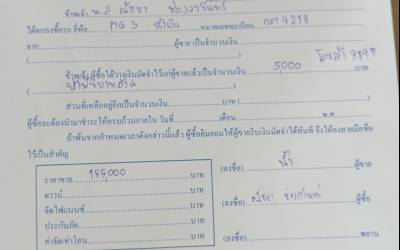 ข้าพเจ้า น.ส
ได้ตกลงซื้อรถ ยี่ห้อ MG 3 หมายเลขทะเบียน 9218
จาก ผู้ขาย เป็นจำนวนเงิน
( )
ข้าพเจ้าผู้ซื้อได้วางเงินมัดจำไว้แก่ผู้ขายแล้วเป็นจำนวนเงิน 5,000 บาท
(ห้าพันบาทถ้วน)
ส่วนที่เหลืออยู่อีกเป็นจำนวนเงิน บาท (
ผู้ซื้อจะต้องนำมาชำระให้ครบถ้วนภายใน วันที่ เดือน พ.ศ.
ถ้าพ้นจากกำหนดเวลาดังกล่าวนี้แล้ว ผู้ซื้อยินยอมให้ผู้ขายริบเงินมัดจำได้ทันที จึงได้ลงลายมือชื่อ
ไว้เป็นสำคัญ
ราคาขาย 185,000 บาท
ดาวน์ บาท
จัดไฟแนนซ์ บาท
ประกันภัย บาท
ค่าจัด/ค่าโอน บาท
(ลงชื่อ) น้ำ ผู้ขาย
( )
(ลงชื่อ) ผู้ซื้อ
( )
(ลงชื่อ) พยาน